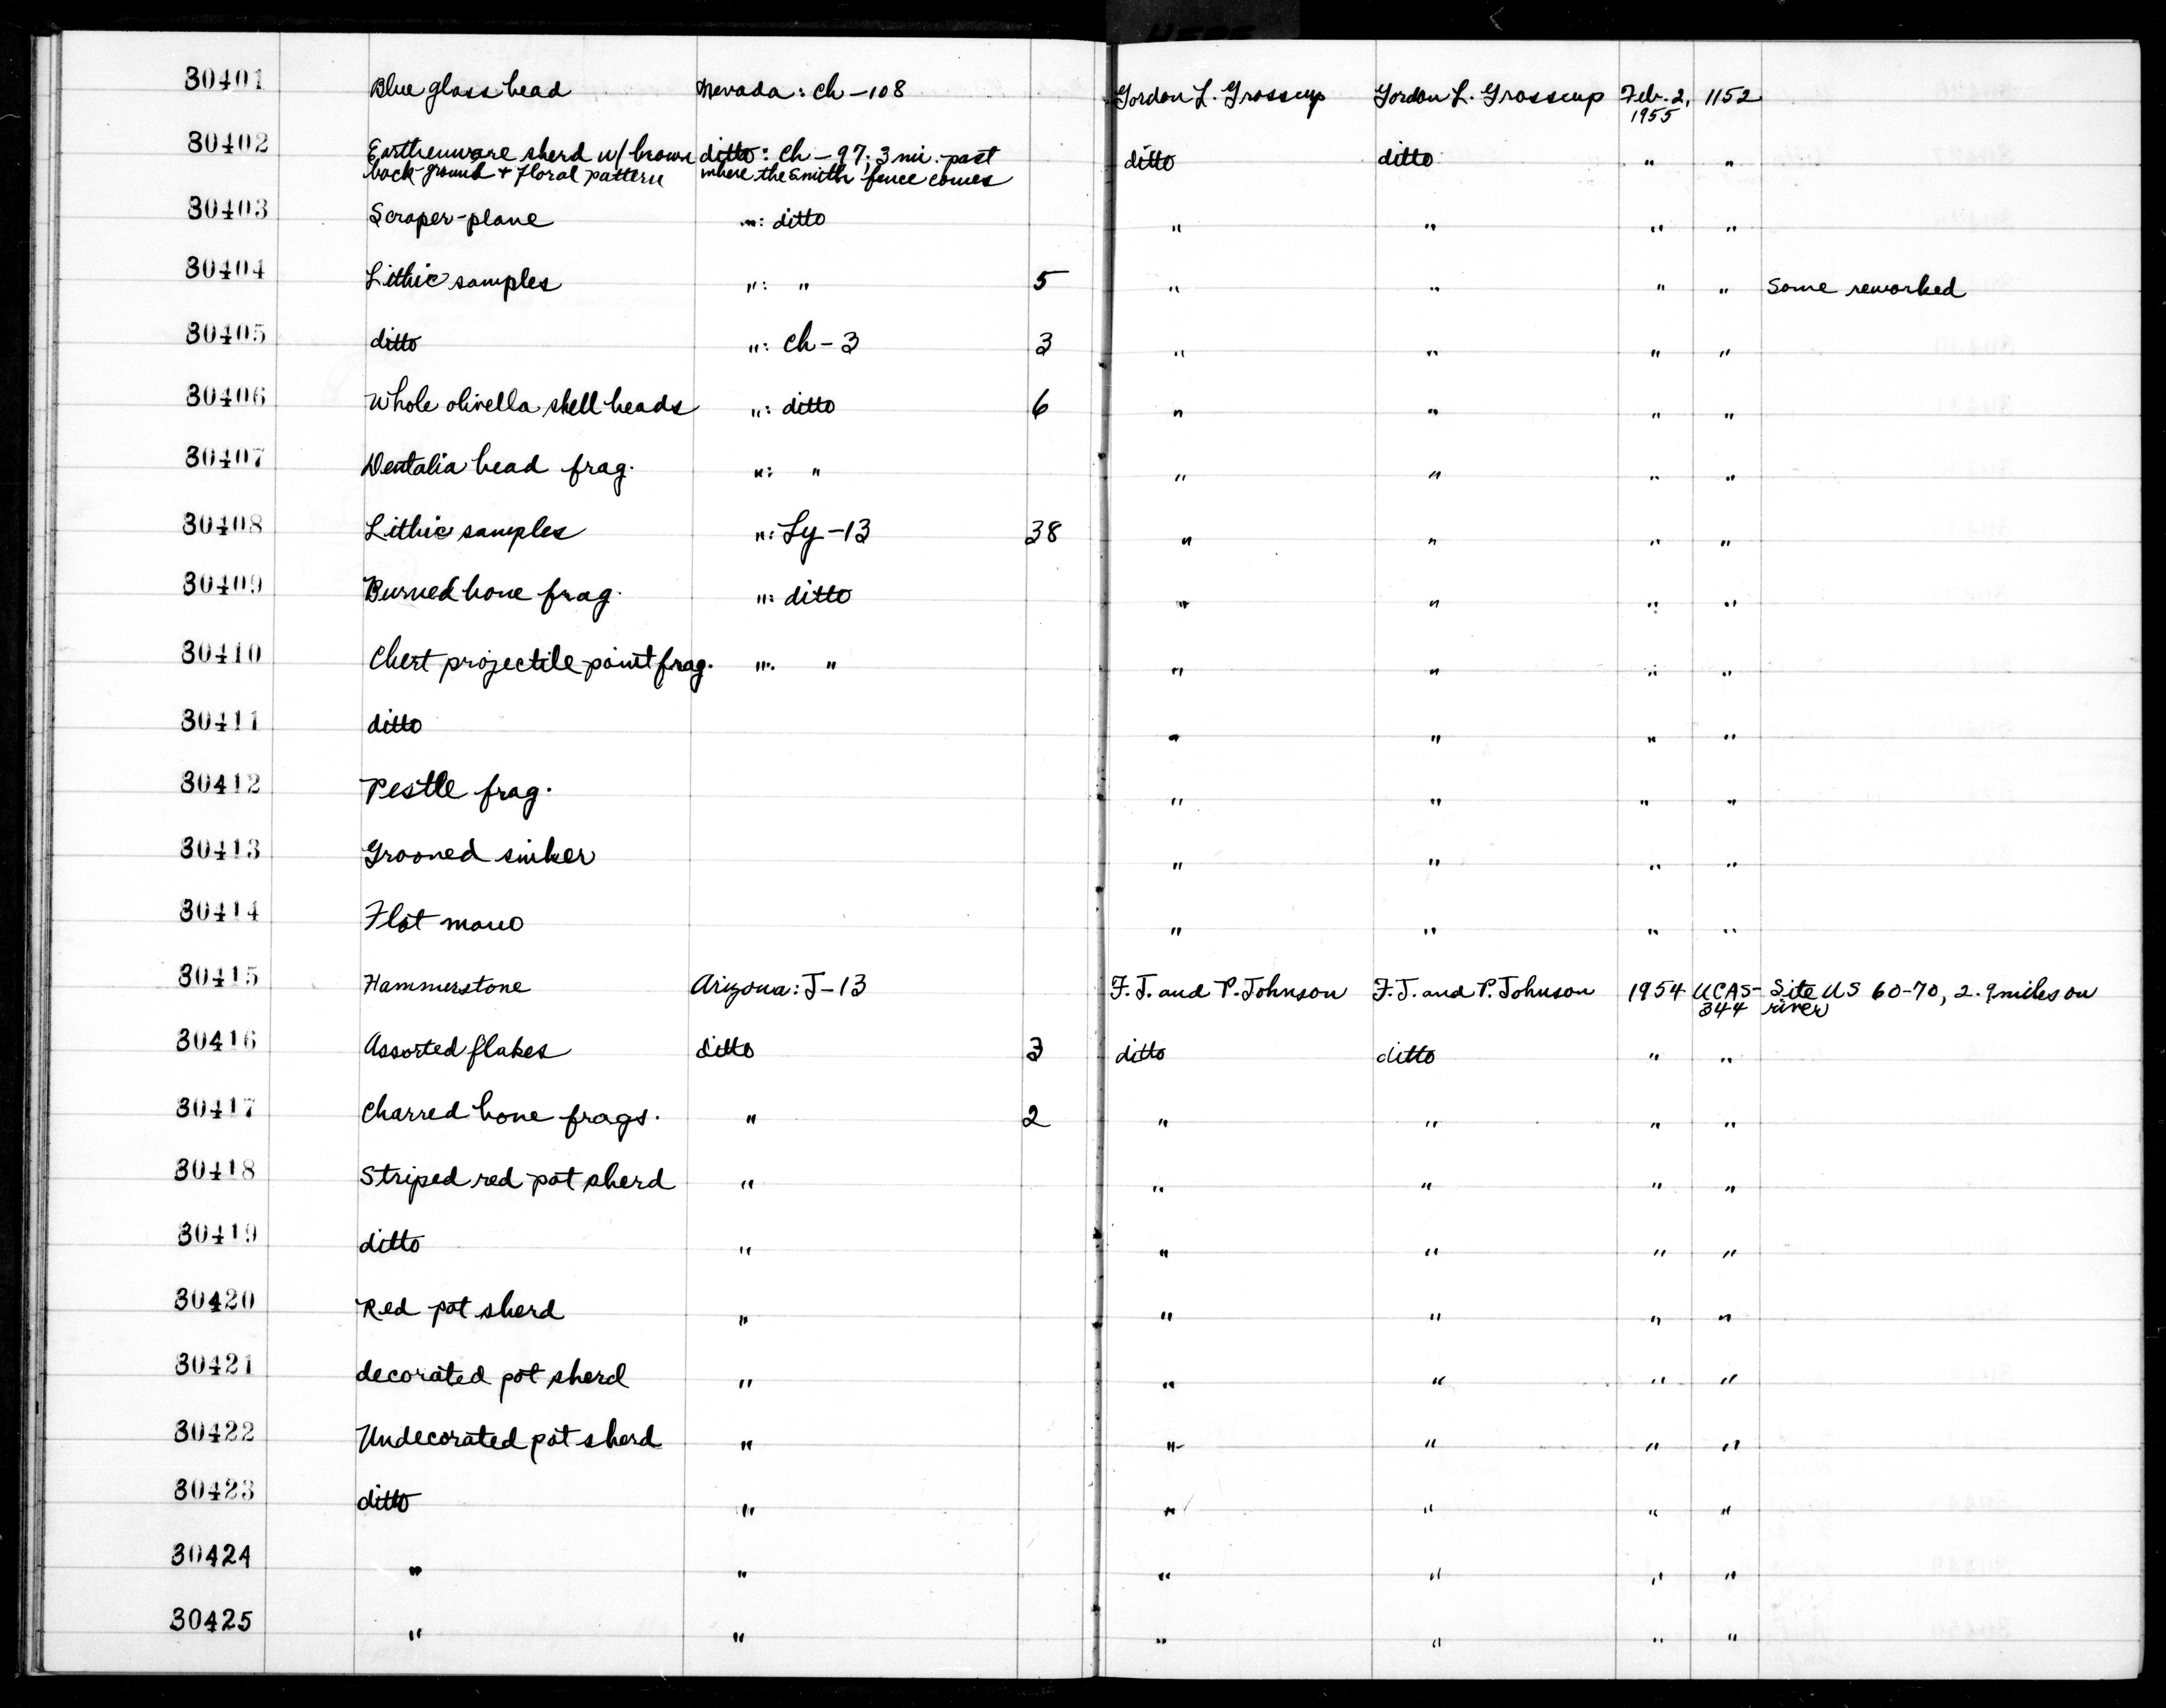 30401 Blue glass bead Nevada: Ch-108 Gordon L. Grosscup Gordon L. Grosscup Feb. 2, 1152
1955
30402 Earthenware sherd w/ brown ditto: Ch-97; 3 mi. past ditto ditto " "
back ground + floral pattern where the Smith fence comes
30403 Scraper-plane ": ditto " " " "
30404 Lithic samples ": " 5 " " " " Some reworked
30405 ditto ": Ch-3 3 " " " "
30406 Whole olivella shell beads ": ditto 6 " " " "
30407 Dentalia bead frag. ": " " " " "
30408 Lithic samples ": Ly-13 38 " " " "
30409 Burned bone frag. ": ditto " " " "
30410 Chert projectile point frag. ": " " " " "
30411 ditto " " " "
30412 Pestle frag. " " " "
30413 Grooved sinker " " " "
30414 Flat mano " " " "
30415 Hammerstone Arizona: J-13 F.J. and P. Johnson F.J. and P. Johnson 1954 UCAS- Site US 60-70, 2.9 miles on
344 river
30416 Assorted flakes ditto 3 ditto ditto " "
30417 Charred bone frags. " 2 " " " "
30418 Striped red pot sherd " " " " "
30419 ditto " " " " "
30420 Red pot sherd " " " " "
30421 decorated pot sherd " " " " "
30422 Undecorated pot sherd " " " " "
30423 ditto " " " " "
30424 " " " " " "
30425 " " " " " "